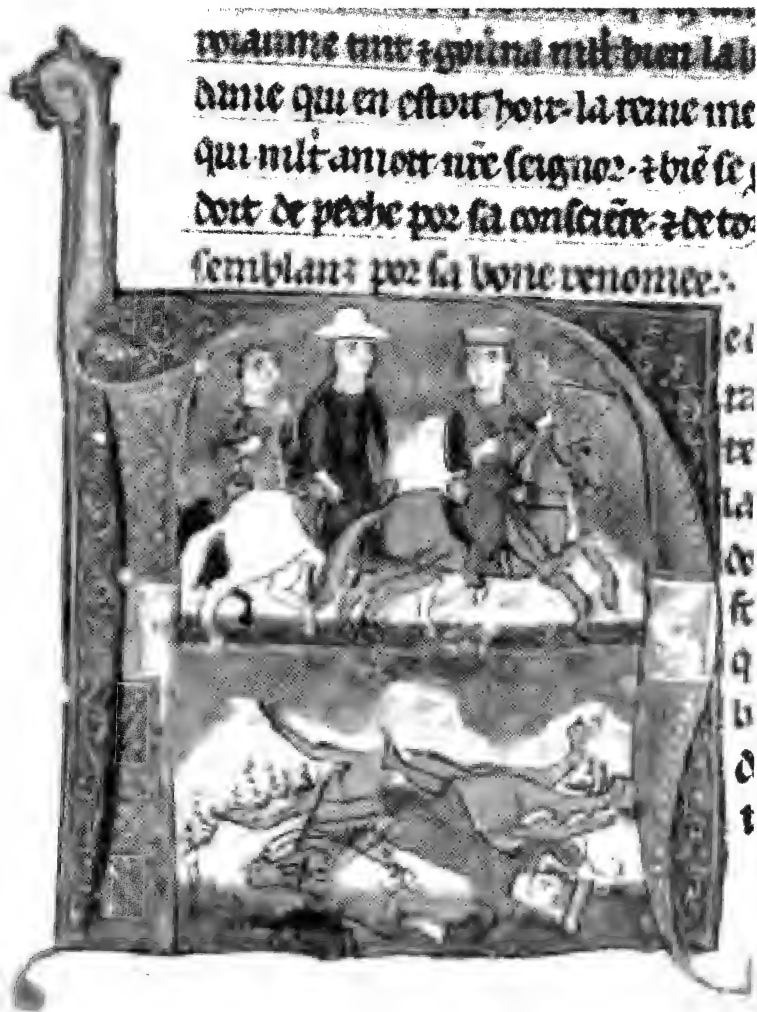 roiaume tint ⁊ gov̄na ml̄t bien la b
dame qui en estoit hoir. la reine me
qui ml̄t amoit n̄re seignor. ⁊ biē se
doit de peche por sa consciēce. ⁊ de to
semblanz por sa bone renomee.
la
q
b